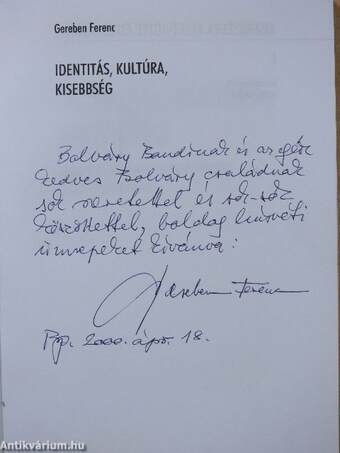 Gereben Ferenc
IDENTITÁS, KULTÚRA,
KISEBBSÉG
Bolváry Bandinak és az egész
kedves Bolváry családnak
sok szeretettel és sok-sok
köszönettel, boldog húsvéti
ünnepeket kívánva:
Gereben Ferenc
Bp. 2000. ápr. 18.
Antikvárium.hu